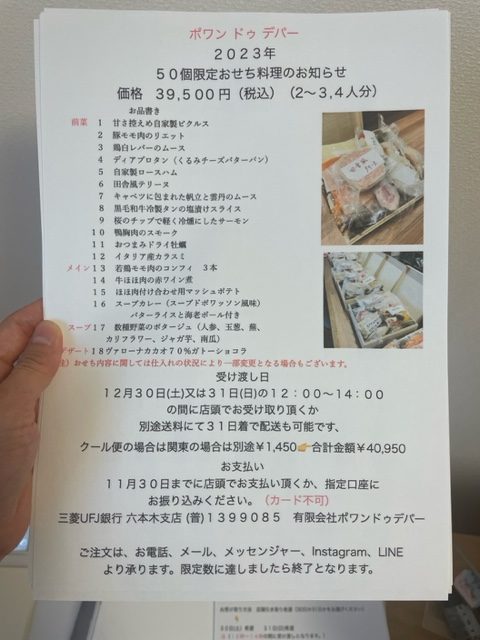 ポワン ドゥ デパー
２０２３年
５０個限定おせち料理のお知らせ
価格 39,500円（税込）（2〜3,4人分）
お品書き
前菜 1 甘さ控えめ自家製ピクルス
2 豚モモ肉のリエット
3 鶏白レバーのムース
4 ディアブロタン（くるみチーズバターパン）
5 自家製ロースハム
6 田舎風テリーヌ
7 キャベツに包まれた帆立と雲丹のムース
8 黒毛和牛冷製タンの塩漬けスライス
9 桜のチップで軽く冷燻にしたサーモン
10 鴨胸肉のスモーク
11 おつまみドライ牡蠣
12 イタリア産カラスミ
メイン 13 若鶏モモ肉のコンフィ ３本
14 牛ほほ肉の赤ワイン煮
15 ほほ肉付け合わせ用マッシュポテト
16 スープカレー（スープドポワッソン風味）
バターライスと海老ボール付き
スープ 17 数種野菜のポタージュ（人参、玉葱、蕪、
カリフラワー、ジャガ芋、南瓜）
デザート 18 ヴァローナカカオ７０％ガトーショコラ
注）おせち内容に関しては仕入れの状況により一部変更となる場合もございます。
受け渡し日
１２月３０日(土)又は３１日(日)の１２：００〜１４：００
の間に店頭でお受け取り頂くか
別途送料にて３１日着で配送も可能です、
クール便の場合は関東の場合は別途￥1,450👉合計金額￥40,950
お支払い
１１月３０日までに店頭でお支払い頂くか、指定口座に
お振り込みください。（カード不可）
三菱UFJ銀行 六本木支店 (普) １３９９０８５ 有限会社ポワンドゥデパー
ご注文は、お電話、メール、メッセンジャー、Instagram、LINE
より承ります。限定数に達しましたら終了となります。